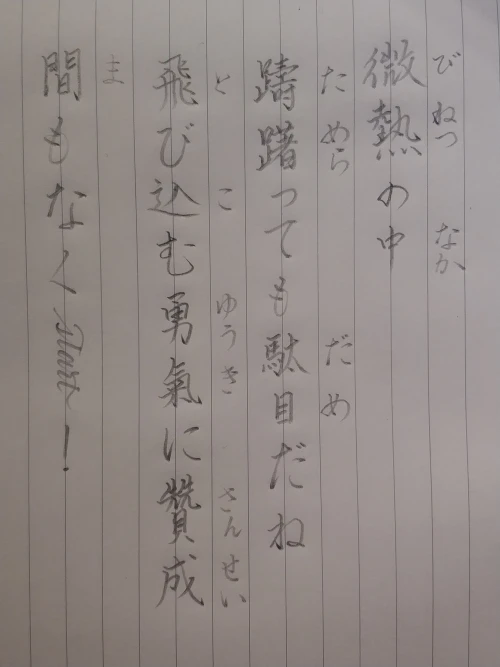 びねつ なか
微熱の中
ためら だめ
躊躇っても駄目だね
と こ ゆうき さんせい
飛び込む勇氣に贊成
ま
間もなくStart!